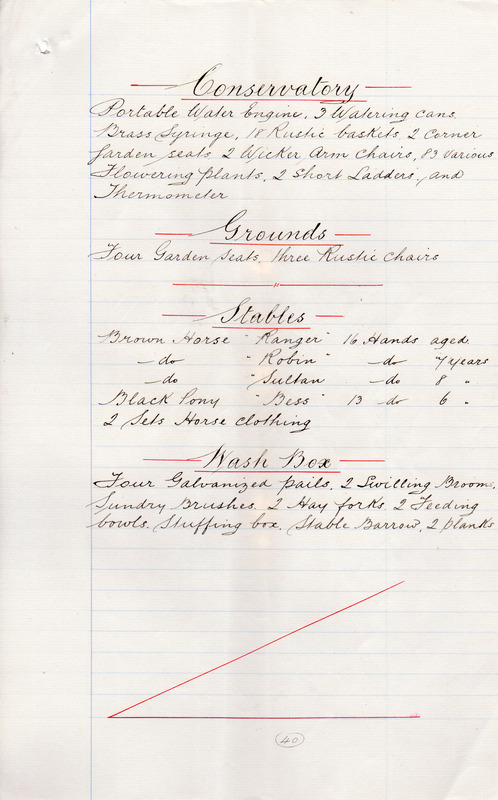 Conservatory
Portable Water Engine, 3 Watering cans.
Brass Syringe, 18 Rustic baskets, 2 corner
Garden seats, 2 Wicker Arm Chairs, 83 various
Flowering plants, 2 Short Ladders, and
Thermometer
Grounds
Four Garden Seats, three Rustic Chairs
"
Stables
Brown Horse "Ranger" 16 Hands aged.
—do "Robin" —do 7 years
—do "Sultan —do 8 "
Black Pony "Bess" 13 do 6 "
2 Sets Horse clothing
Wash Box
Four Galvanized pails, 2 Swilling Brooms,
Sundry Brushes. 2 Hay forks. 2 Feeding
bowls. Stuffing box. Stable Barrow, 2 planks
40